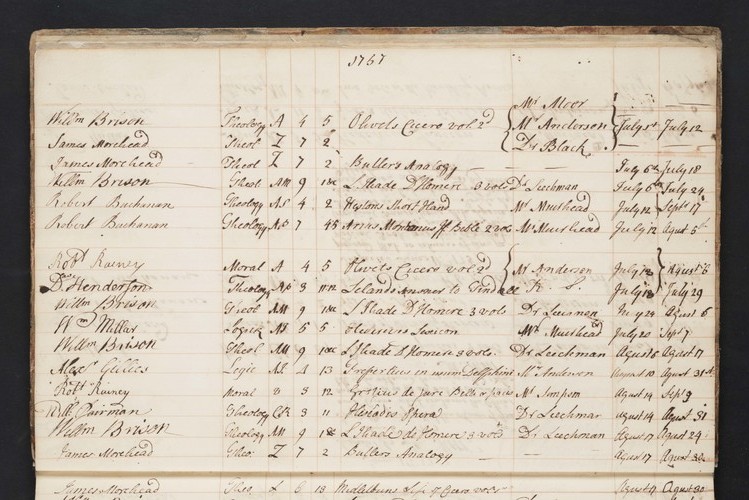 1767
Mr Moor
Willm Brison Theology A 4 5 Olivets Cicero vol. 2d Mr Anderson July 1st July 12
James Morehead Theol Z 7 2 Dr Black
James Morehead Theol Z 7 2 Butlers Analogy — July 6th July 18
Willm Brison Theol AM 9 L'Iliade D'Homere 3 vols Dr Leechman July 6th July 24
Robert Buchanan Theology 4 2 Hestons Short Hand Mr Muirhead July 12 Sept 17
Robert Buchanan Theology 7 Arias Montanus Bible 2 vols Mr Muirhead July 12 Agust 5th
Robt Rainey Moral A 4 5 Olivets Cicero vol 2d Mr Anderson July 12 Agust 6
Henderson Theology 3 Lelands Answer to Tindall July 29
Willm Brison Theol AM 9 L'Iliade D'Homere 3 vols Dr July 24 Agust 6
Wm Millar Logick 5 5 Mr Muirhead July 20 Sept 7
Willm Brison Theol AM 9 L'Iliade d'Homere 3 vols. Dr Leechman Agust 6 Agust 17
Alexr Gillies Logic 4 13 Propertius in usum Delphini Mr Anderson Agust 10 Agust 31st
Robt Rainey Moral 3 12 Grotius de jure Belli & pacis Mr Simpson Agust 14 Sept 9
Theology 3 11 Opera Dr Leechman agust 14 Agust 31
Willm Brison Theology AM 9 L'Iliade de Homere 3 vols Dr Leechman Agust 17 Agust 24
James Morehead Theo Z 7 2 Butlers Analogy — Agust 17 Agust 30
James Morehead Theo 6 13 Middletons Life of Cicero Agust 17 Agust 30